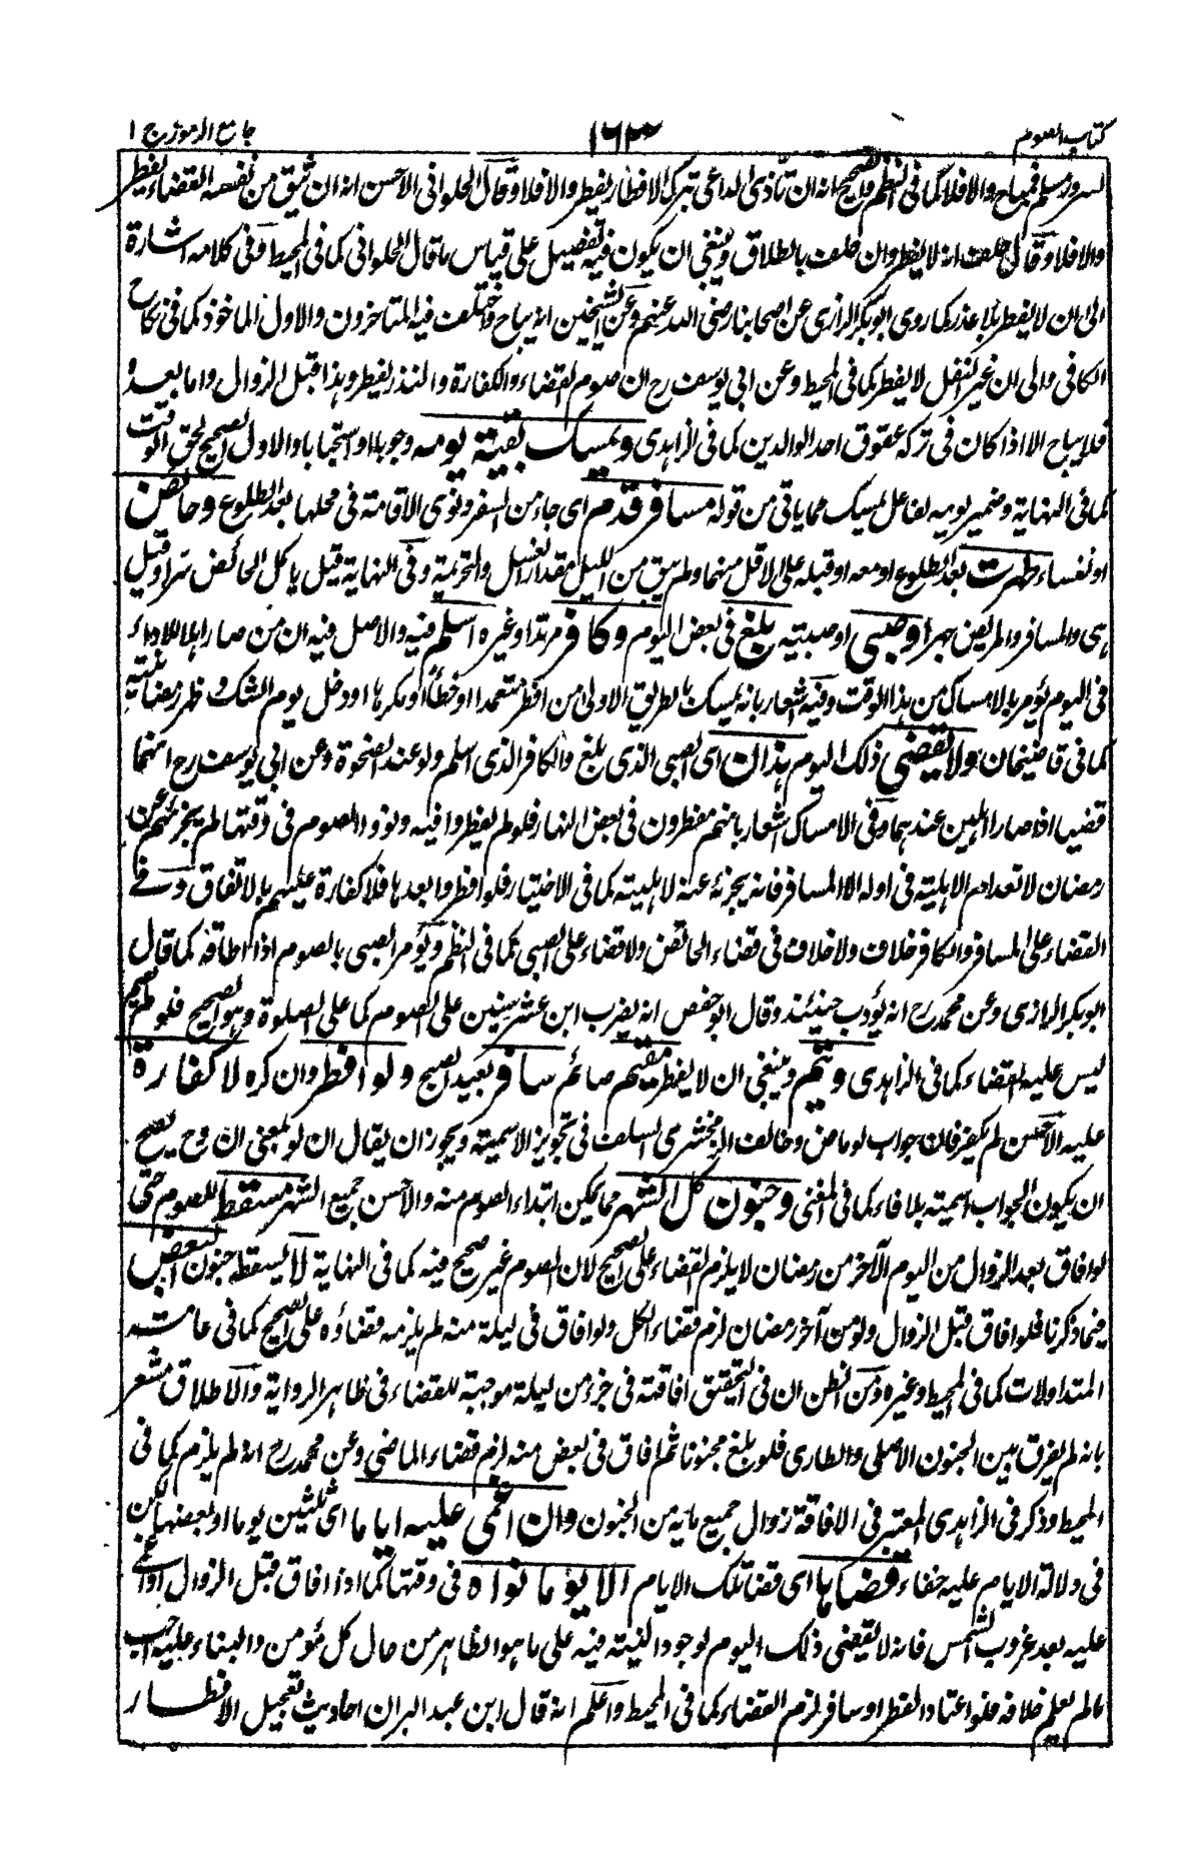 كتاب الصوم ١٦٣ جامع الرموز ج ١
لسرور مسلم فمباح والا فلا كما فى النظم والصحيح انه ان تأذى الداعى بترك الافطار يفطر والا فلا وقال الحلوانى الاحسن انه ان يثق من نفسه القضاء يفطر
والا فلا وقال خلف انه لا يفطر وان حلف بالطلاق وينبغى ان يكون فيه تفصيل على قياس ما قال الحلوانى كما فى المحيط وفى كلامه اشارة
الى ان لا يفطر بلا عذر كما روى ابو بكر الرازى عن اصحابنا رضى الله عنهم وعن الشيخين انه يباح واختلف فيه المتاخرون والاول الماخوذ كما فى نكاح
الكافى والى ان غير النفل لا يفطر كما فى المحيط وعن ابى يوسف رح ان صوم القضاء والكفارة والنذر يفطر وهذا قبل الزوال واما بعده
فلا يباح الا اذا كان فى تركه عقوق احد الوالدين كما فى الزاهدى ويمسك بقية يومه وجوبا او استحبابا والاول الصحيح لحق الوقت
كما فى النهاية وضمير يومه لفاعل يمسك مما ياتى من قوله مسافر قدم اى جاء من السفر ونوى الاقامة فى محلها بعد الطلوع وحائض
او نفساء طهرت بعد الطلوع او معه او قبله على الاقل منهما ولم يبق من الليل مقدار الغسل والتحريمة وفى النهاية قيل ياكل الحائض سرا وقيل
هى والمسافر والمريض جهرا وصبى او صبية بلغ فى بعض اليوم وكافر مرتد او غيره اسلم فيه والاصل فيه ان من صار اهلا للاداء
فى اليوم يؤمر بالامساك من هذا الوقت وفيه اشعار بانه يمسك بالطريق الاولى من افطر متعمدا او خطأ او مكرها او دخل يوم الشك وظهر رمضانيته
كما فى قاضيخان ولا يقضى ذلك اليوم هذان اى الصبى الذى بلغ والكافر الذى اسلم ولو عند الضحوة وعن ابى يوسف رح انهما
قضيا اذا صارا اهلين عندهما وفى الامساك اشعار بانهم مفطرون فى بعض النهار فلو لم يفطروا فيه ونووا الصوم فى وقتها لم يجزئهم عن
رمضان لانعدام الاهلية فى اوله الا المسافر فانه يجزئه عنه لاهليته كما فى الاختيار فلو افطروا بعدها فلا كفارة عليهم بالاتفاق وفى
القضاء على المسافر والكافر خلاف ولا خلاف فى قضاء الحائض ولا قضاء على الصبى كما فى النظم ويؤمر الصبى بالصوم اذا اطاقه كما قال
ابو بكر الرازى وعن محمد رح انه يؤدب حينئذ وقال ابو حفص انه يضرب ابن عشر سنين على الصوم كما على الصلوة وهو الصحيح فلو لم يصم
ليس عليه القضاء كما فى الزاهدى ويتم وينبغى ان لا يفطر مقيم صائم سافر بعيد الصبح ولو افطر وان كره لا كفارة
عليه الاحسن لم يكفر فان جواب لو ماض وخالف الزمخشرى السلف فى تجويز الاسمية ويجوز ان يقال ان لو بمعنى ان وح يصح
ان يكون الجواب اسمية بلا فاء كما فى المغنى وجنون كل الشهر مما يمكن ابتداء الصوم منه والاحسن جميع الشهر مسقط للصوم حتى
لو افاق بعد الزوال من اليوم الآخر من رمضان لا يلزم القضاء على الصحيح لان الصوم غير صحيح فيه كما فى النهاية لا يسقطه جنون البعض
فيما ذكرنا فلو افاق قبل الزوال ولو من آخر رمضان لزم قضاء الكل ولو افاق فى ليلة منه لم يلزمه قضاؤه على الصحيح كما فى عامة
المتداولات كما فى المحيط وغيره ومن الظن ان فى التحقيق افاقته فى جزء من ليلة موجبة للقضاء فى ظاهر الرواية والاطلاق مشعر
بانه لم يفرق بين الجنون الاصلى والطارى فلو بلغ مجنونا ثم افاق فى بعض منه لزم قضاء الماضى وعن محمد رح انه لم يلزم كما فى
المحيط وذكر فى الزاهدى المعتبر فى الافاقة زوال جميع ما به من الجنون وان اغمى عليه اياما اى ثلثين يوما او بعضها لكن
فى دلالة الايام عليه خفاء قضاها اى قضا تلك الايام الا يوما نواه فى وقتها كما اذا افاق قبل الزوال او اغمى
عليه بعد غروب الشمس فانه لا يقضى ذلك اليوم لوجود النية فيه على ما هو الظاهر من حال كل مؤمن والبناء عليه واجب
ما لم يعلم خلافه فلو اعتاد الفطر او سافر لزم القضاء كما فى المحيط واعلم انه قال ابن عبد البر ان احاديث تعجيل الافطار